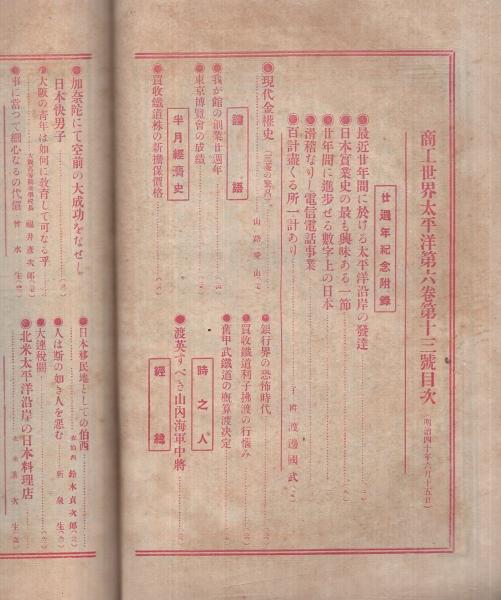 商工世界太平洋第六卷第十三號目次
明治四十年六月十五日
廿週年紀念附錄
●最近廿年間に於ける太平洋沿岸の發達
●日本實業史の最も興味ある一節
●廿年間に進步せる數字上の日本
●滑稽なりし電信電話事業
●百計盡くる所一計あり
子爵 渡邊國武
●現代金權史
山路愛山
論語
●我が館の創業廿週年
●東京博覽會の成績
半月經濟史
●買收鐵道株の新擔保價格
●銀行界の恐怖時代
●買收鐵道利子拂渡の行惱み
●舊甲武鐵道の概算渡决定
時之人
●渡英すべき山內海軍中將
經緯
●加奈陀にて空前の大成功をなせし
日本快男子
●大阪の青年は如何に敎育して可なる乎
福井彥次郎
●事に當つて細心なるの代價
●日本移民地としての伯西
鈴木貞次郎
●人は斯の如き人を惡む
●大連稅關
●北米太平洋沿岸の日本料理店